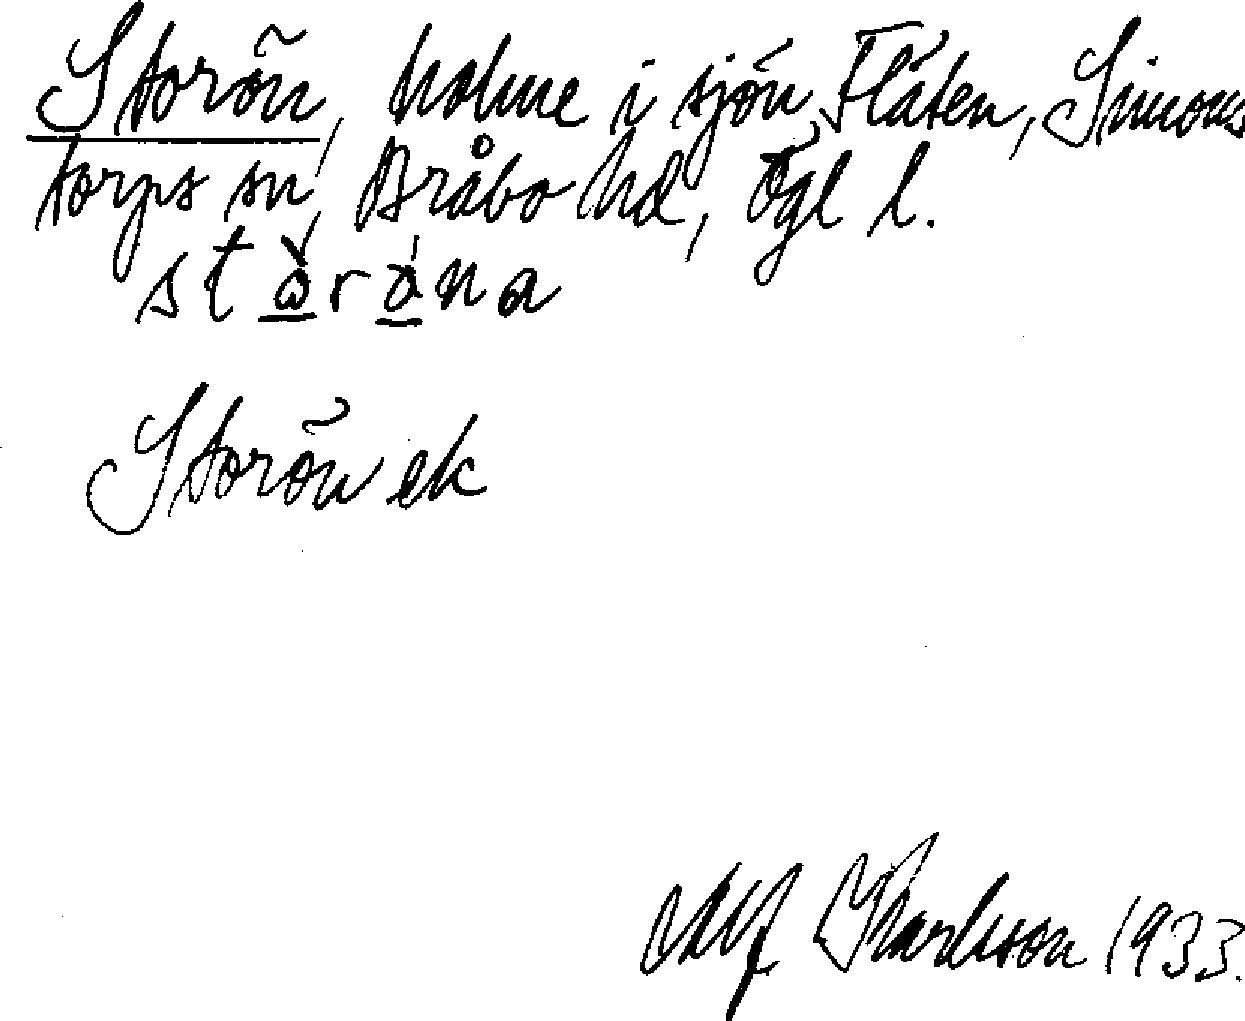 Storön, holme i sjön Flåten, Simons
torps sn, Bråbo hd, Ögl l.
Storön ek
Alf Karlsson 1933.